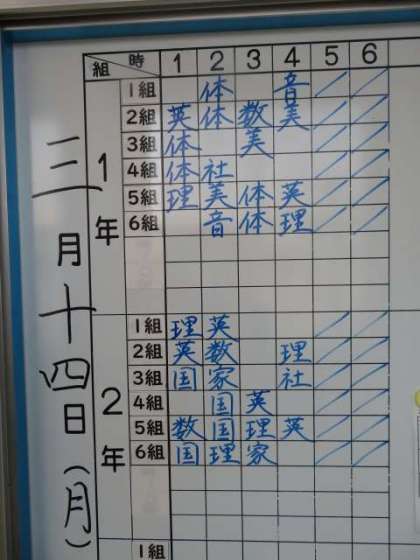 三月十四日(月)
組 時 1 2 3 4 5 6
1年
1組 体 音 / /
2組 英 体 数 美 / /
3組 体 美 / /
4組 体 社 / /
5組 理 美 体 英 / /
6組 音 体 理 / /
2年
1組 理 英 / /
2組 英 数 理 / /
3組 国 家 社 / /
4組 国 英 / /
5組 数 国 理 英 / /
6組 国 理 家 / /
1組